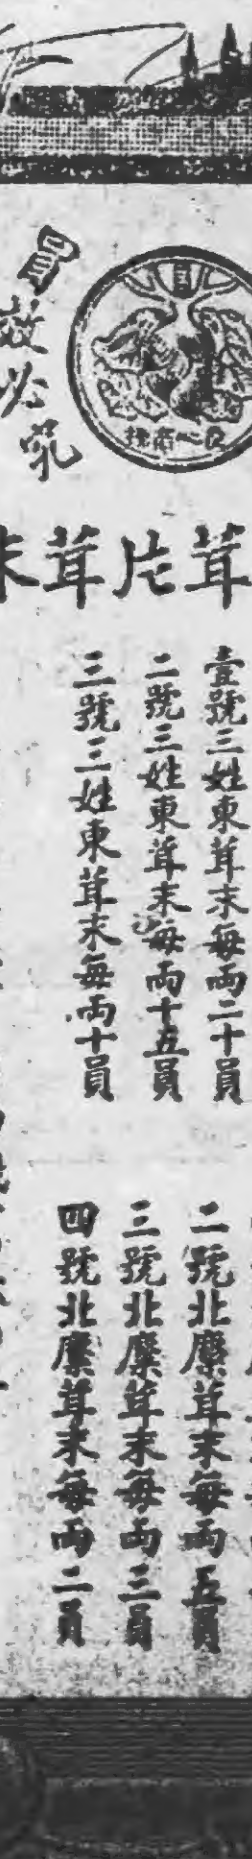 茸片茸末
壹號三姓東茸末每両二十員
二號三姓東茸末每両十五員
三號三姓東茸末每両十員
二號北麋茸末每両五員
三號北麋茸末每両三員
四號北麋茸末每両二員
冒效必究